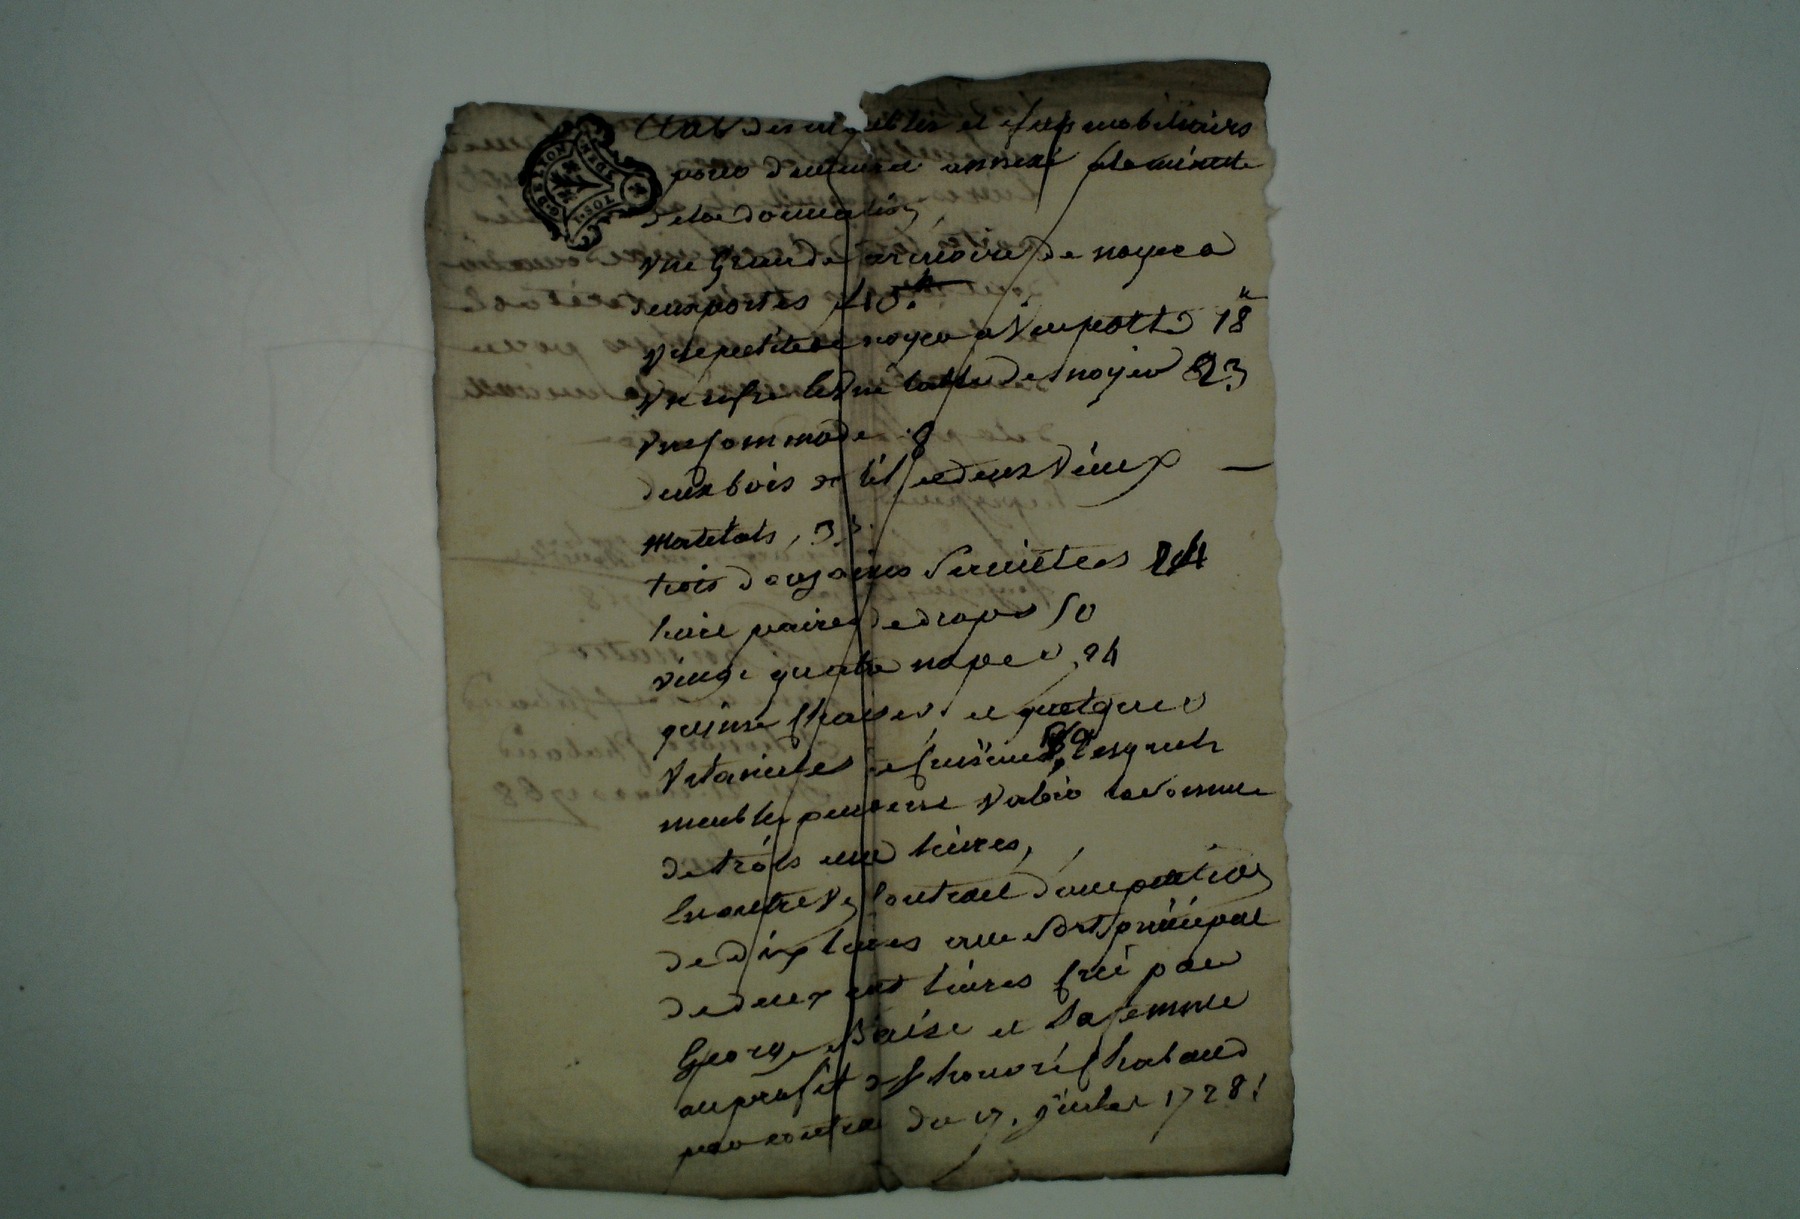 G. DE LYON
1. SOL
Etat des meubles et efets mobiliairs
pour demeurer annexé a la minutte
de la donnation
Vne Grande armoire de noyer a
deux portes 40.#
Vne petite de noyer a Vne portte 18#
Vn cofre et Vne table de noyer 23
Vne commode . 8
deux bois de lit et deux Vieux —
Matelats, 3
trois douzaines Serviettes 24
huit paires de draps 50
vingt quatre napes, 24
quinse chaises, et quelques
Vtanciles de cuisine lesquels
meubles peuvent Valoir la somme
de trois cent livres,
En outre Vn Contract d'une pention
de dix livres au sort principal
de deux cent livres créé par
George et sa femme
au profit de honoré Chabaud
par contrat du 17. juillet 1728.